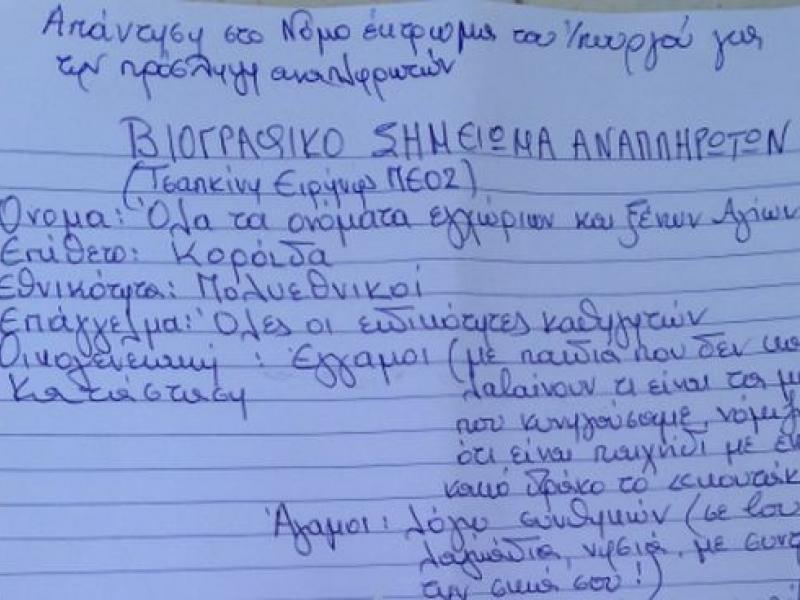 Απάντηση στο Νόμο έκτρωμα του Υπουργού για
την πρόσληψη αναπληρωτών
ΒΙΟΓΡΑΦΙΚΟ ΣΗΜΕΙΩΜΑ ΑΝΑΠΛΗΡΩΤΩΝ
(Τσαπκίνη Ειρήνη ΠΕ02)
Όνομα: Όλα τα ονόματα εγχώριων και ξένων Αγίων
Επίθετο: Κορόιδα
Εθνικότητα: Πολυεθνικοί
Επάγγελμα: Όλες οι ειδικότητες καθηγητών
Οικογενειακή : Έγγαμοι (με παιδιά που δεν κα
Κατάσταση λαβαίνουν τι είναι τα
που κυνηγούσαμε, νόμιζ
ότι είναι παιχνίδι με έν
κακό δράκο το
Άγαμοι: λόγω συνθηκών (σε βου
λαγκάδια, νησιά, με συντ
την σκιά σου!)